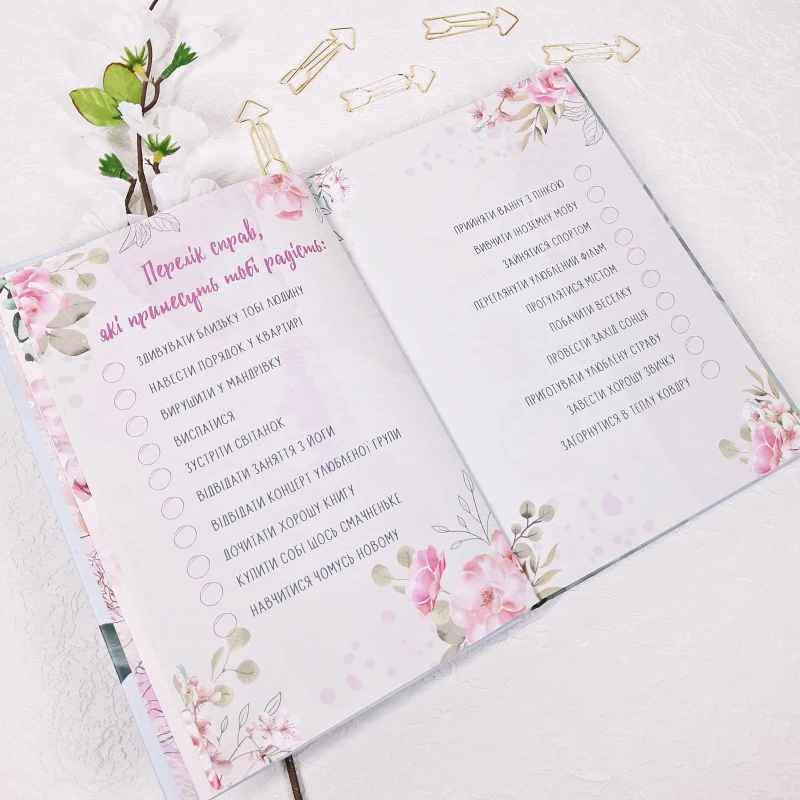 Перелік справ,
які принесуть тобі радість:
ЗДИВУВАТИ БЛИЗЬКУ ТОБІ ЛЮДИНУ
НАВЕСТИ ПОРЯДОК У КВАРТИРІ
ВИРУШИТИ У МАНДРІВКУ
ВИСПАТИСЯ
ЗУСТРІТИ СВІТАНОК
ВІДВІДАТИ ЗАНЯТТЯ З ЙОГИ
ВІДВІДАТИ КОНЦЕРТ УЛЮБЛЕНОЇ ГРУПИ
ДОЧИТАТИ ХОРОШУ КНИГУ
КУПИТИ СОБІ ЩОСЬ СМАЧНЕНЬКЕ
НАВЧИТИСЯ ЧОМУСЬ НОВОМУ
ПРИЙНЯТИ ВАННУ З ПІНКОЮ
ВИВЧИТИ ІНОЗЕМНУ МОВУ
ЗАЙНЯТИСЯ СПОРТОМ
ПЕРЕГЛЯНУТИ УЛЮБЛЕНИЙ ФІЛЬМ
ПРОГУЛЯТИСЯ МІСТОМ
ПОБАЧИТИ ВЕСЕЛКУ
ПРОВЕСТИ ЗАХІД СОНЦЯ
ПРИГОТУВАТИ УЛЮБЛЕНУ СТРАВУ
ЗАВЕСТИ ХОРОШУ ЗВИЧКУ
ЗАГОРНУТИСЯ В ТЕПЛУ КОВДРУ